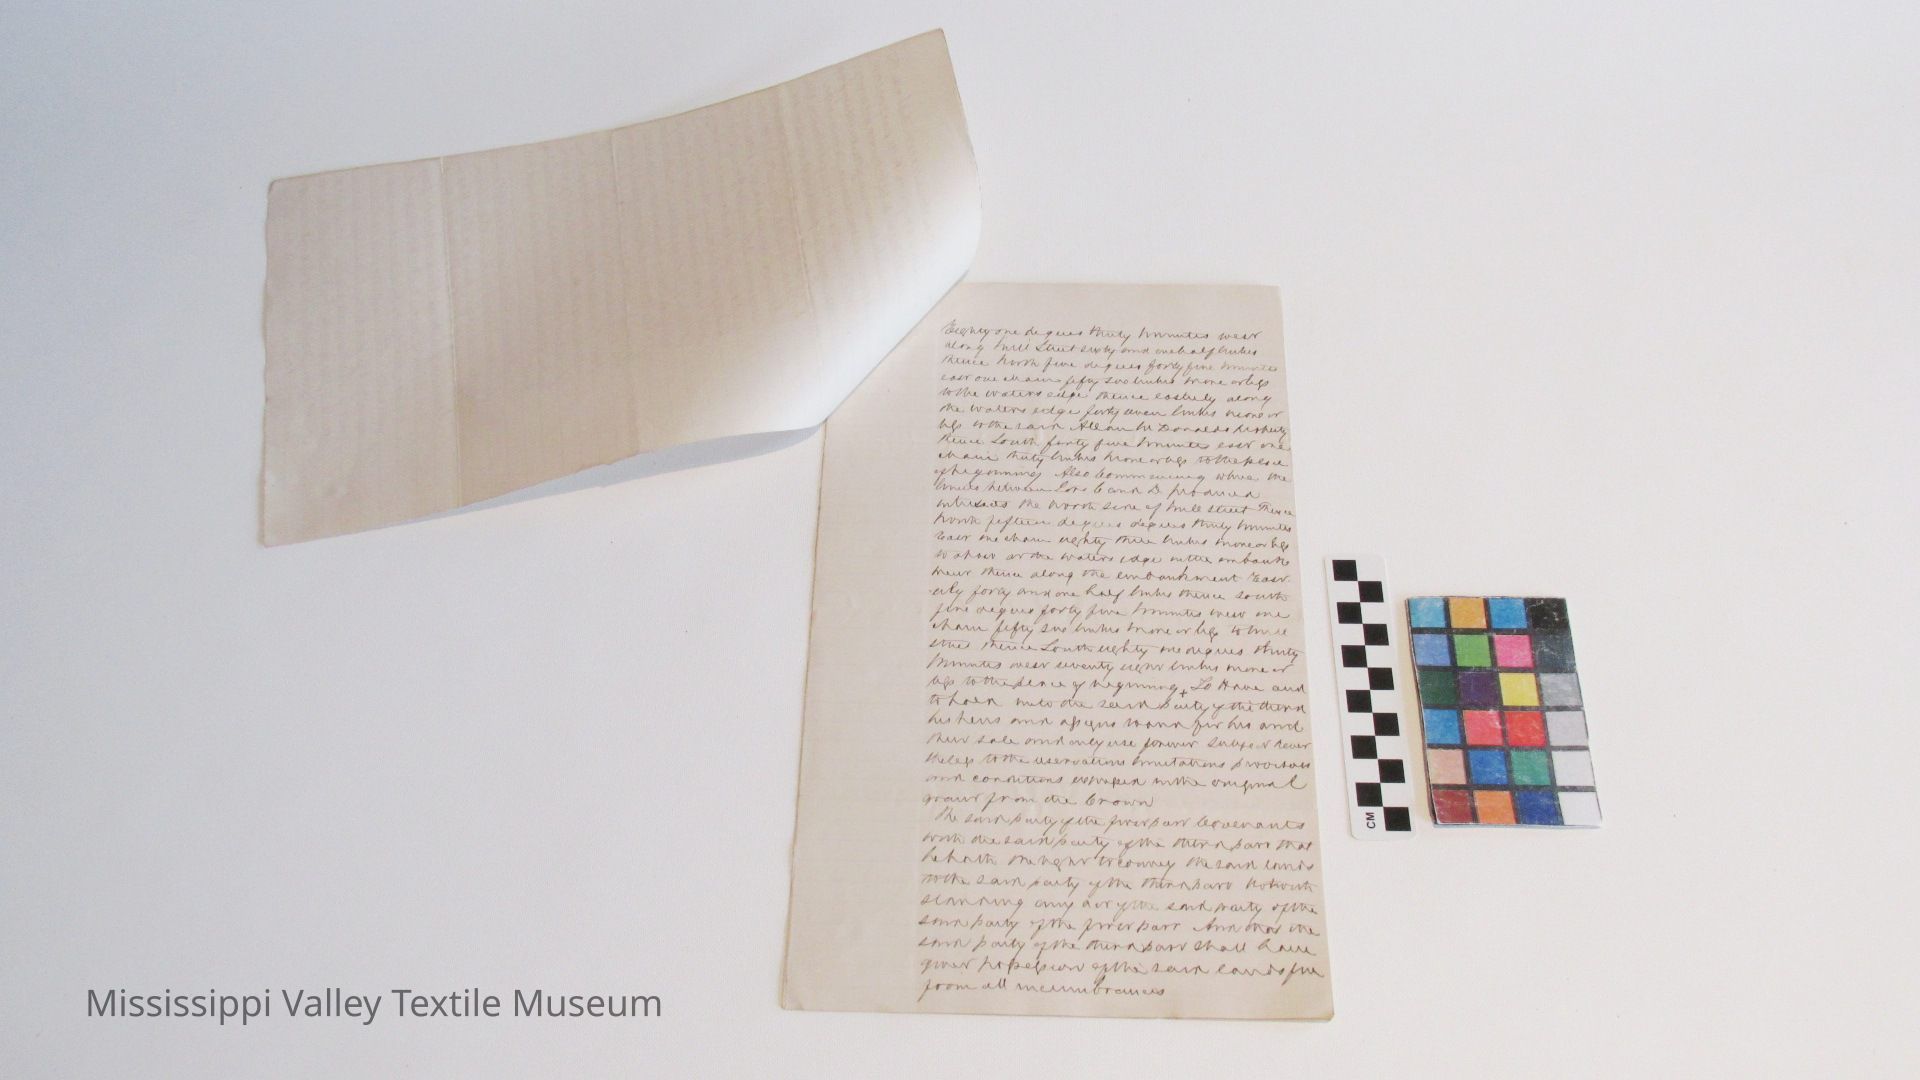 Eighty one degrees thirty minutes west
along Mill Street sixty and one half links
thence North five degrees forty five minutes
east one chain fifty two links more or less
to the waters edge thence easterly along
the waters edge forty seven links more or
less to the said Allan McDonalds property
thence South forty five minutes east one
chain thirty links more or less to the place
of beginning Also Commencing where the
lines between Lots C and D produced
intersects the North side of Mill Street Thence
North fifteen degrees degrees thirty minutes
East one chain eighty three links more or less
to the waters edge in the embank
ment thence along the embankment East
erly forty and one half links thence South
five degrees forty five minutes west one
chain fifty two links more or less to Mill
Street thence South eighty one degrees thirty
minutes west seventy eight links more or
less to the place of beginning To Have and
to hold unto the said party of the third
his heirs and assigns to and for his and
their sole and only use forever Subject never
theless to the reservations limitations provisoes
and conditions expressed in the original
grant from the Crown
The said party of the first part Covenants
with the said party of the third part that
he hath the right to convey the said lands
to the said party of the third part Notwith
standing any act of the said party of the
said party of the first part And that the
said party of the third part shall have
quiet possession of the said lands free
from all incumbrances
CM
Mississippi Valley Textile Museum